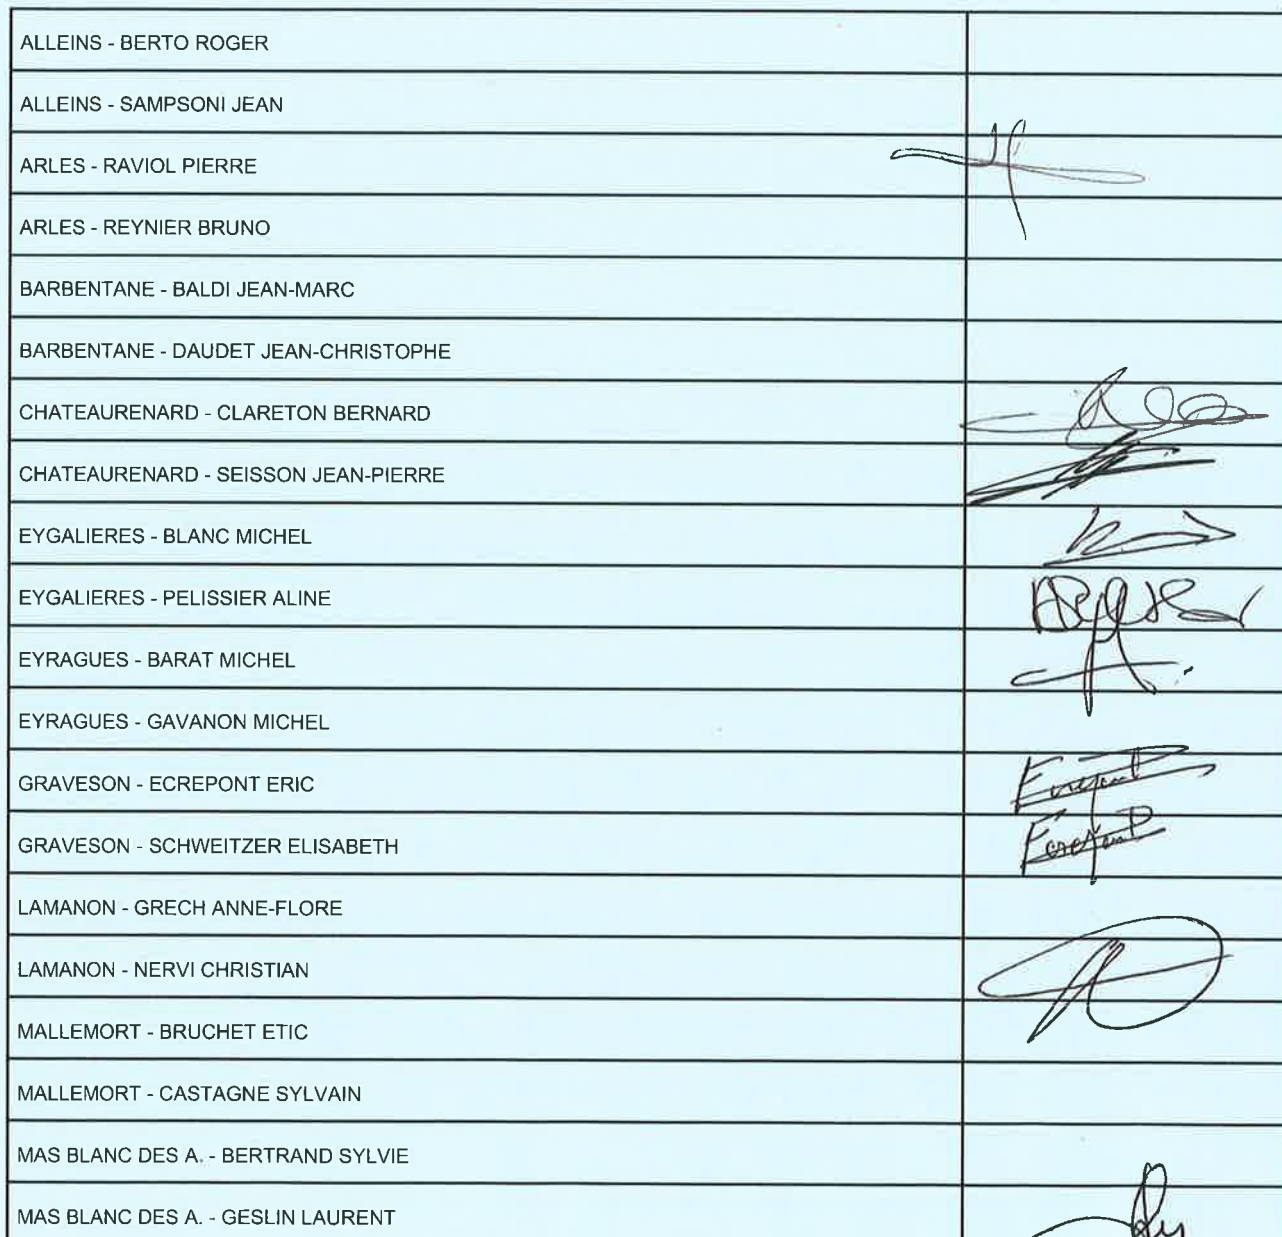 ALLEINS - BERTO ROGER
ALLEINS - SAMPSONI JEAN
ARLES - RAVIOL PIERRE
ARLES - REYNIER BRUNO
BARBENTANE - BALDI JEAN-MARC
BARBENTANE - DAUDET JEAN-CHRISTOPHE
CHATEAURENARD - CLARETON BERNARD
CHATEAURENARD - SEISSON JEAN-PIERRE
EYGALIERES - BLANC MICHEL
EYGALIERES - PELISSIER ALINE
EYRAGUES - BARAT MICHEL
EYRAGUES - GAVANON MICHEL
GRAVESON - ECREPONT ERIC
GRAVESON - SCHWEITZER ELISABETH
LAMANON - GRECH ANNE-FLORE
LAMANON - NERVI CHRISTIAN
MALLEMORT - BRUCHET ETIC
MALLEMORT - CASTAGNE SYLVAIN
MAS BLANC DES A. - BERTRAND SYLVIE
MAS BLANC DES A. - GESLIN LAURENT